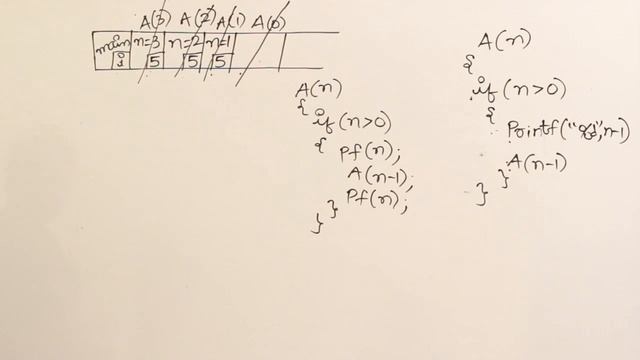 A(3) A(2) A(1) A(0)
main n=3 n=2 n=1
1 5 5 5
A(n)
{
if (n>0)
{ Pf(n);
A(n-1);
} Pf(n);
}
A(n)
{
if (n>0)
{
Printf("%d",n-1)
A(n-1)
}
}